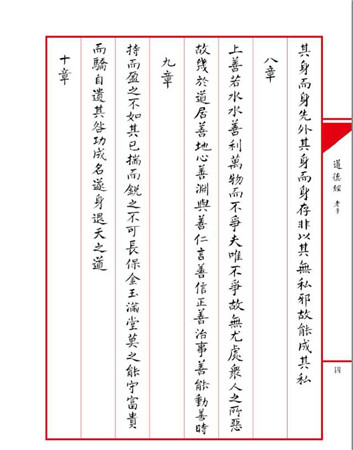 道德經 老子
四
其身而身先外其身而身存非以其無私邪故能成其私
八章
上善若水水善利萬物而不爭夫唯不爭故無尤處衆人之所惡
故幾於道居善地心善淵與善仁言善信正善治事善能動善時
九章
持而盈之不如其已揣而銳之不可長保金玉滿堂莫之能守富貴
而驕自遺其咎功成名遂身退天之道
十章